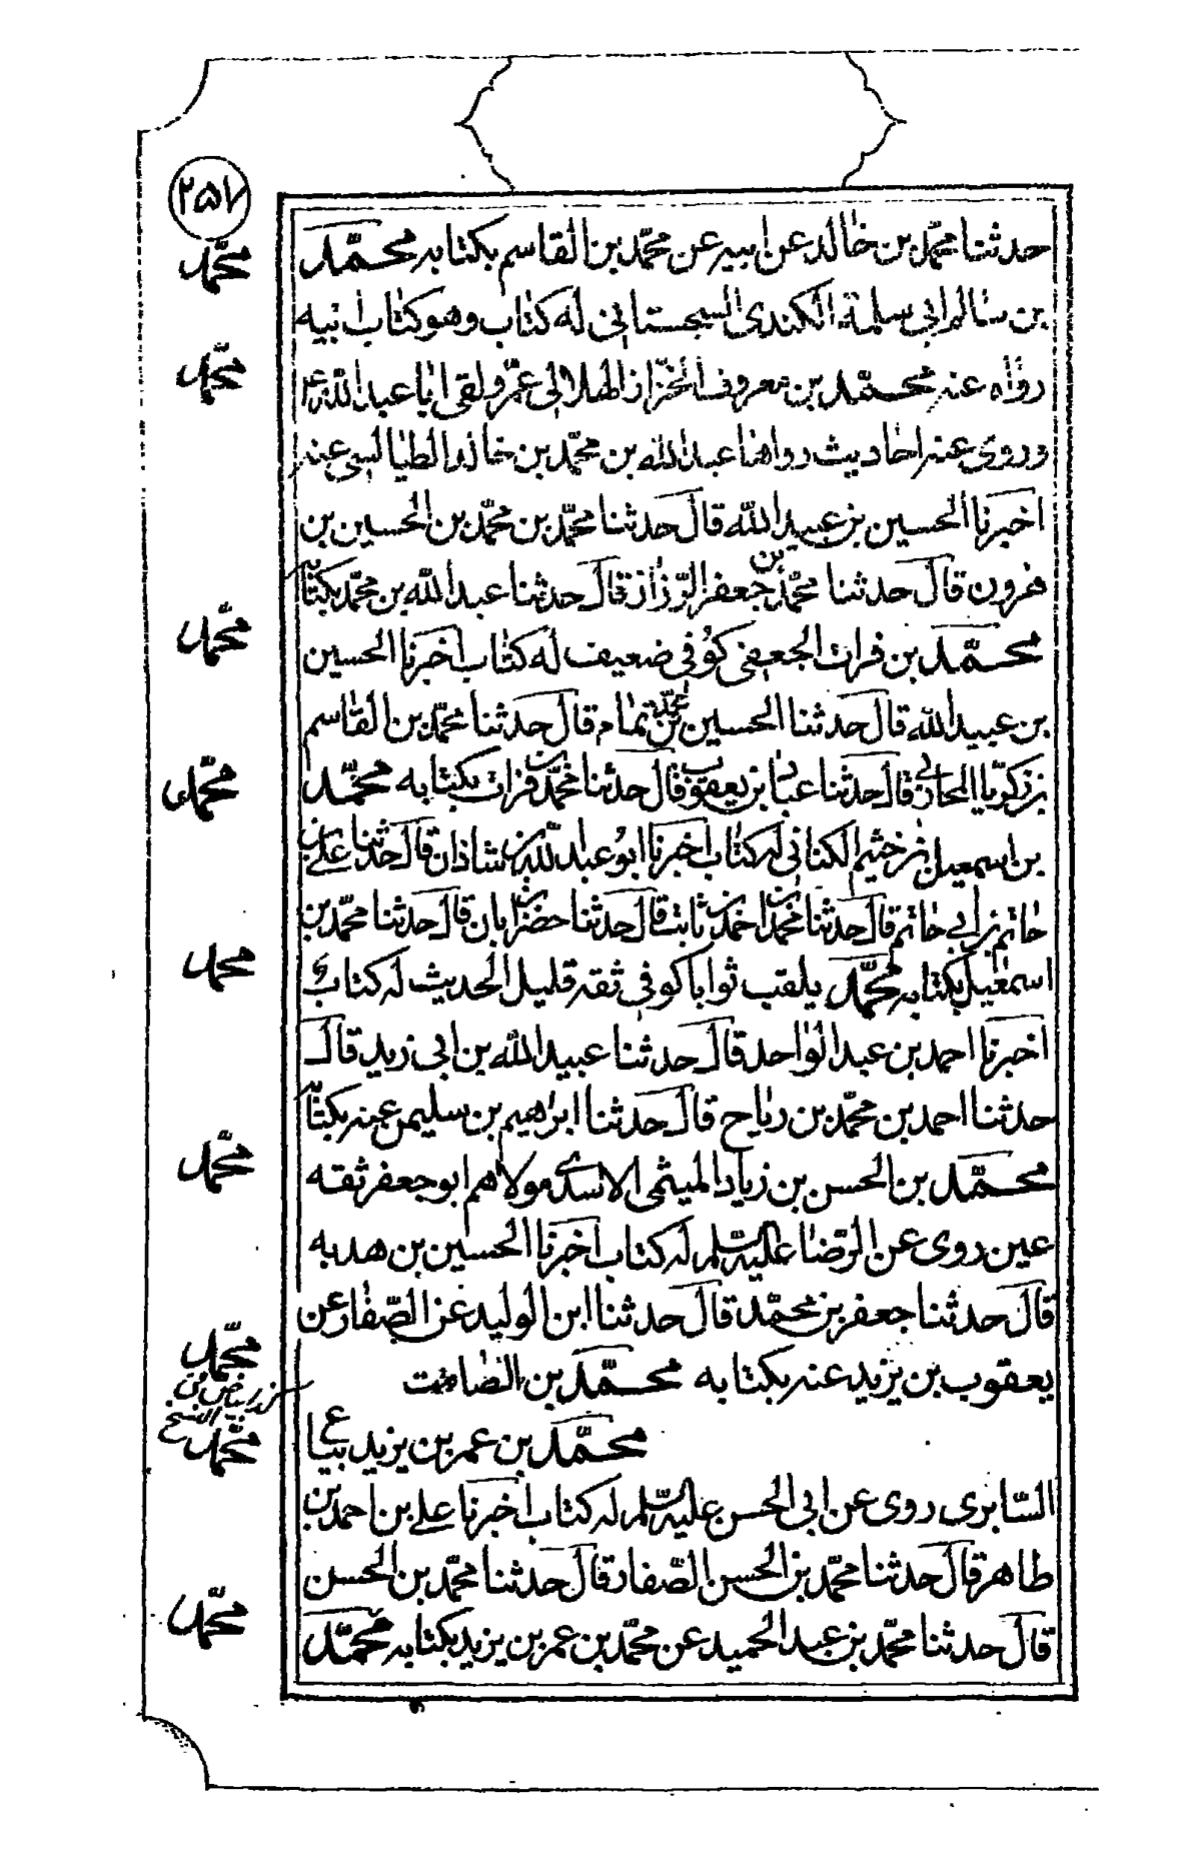 ٢٥٧
حدثنا محمّد بن خالد عن ابيه عن محمّد بن القاسم بكتابه محمّد
محمّد
بن سالم ابى سلمة الكندى السجستانى له كتاب وهو كتاب ابيه
رواه عنه محمّد بن معروف الخزاز الهلالى عمّر ولقى ابا عبد الله ع
محمّد
وروى عنه احاديث رواها عبد الله بن محمّد بن خالد الطيالسى عنه
اخبرنا الحسين بن عبيد الله قال حدثنا محمّد بن محمّد بن الحسين بن
هرون قال حدثنا محمّد بن جعفر الرّزاز قال حدثنا عبد الله بن محمّد بكتابه
محمّد بن فرات الجعفى كوفى ضعيف له كتاب اخبرنا الحسين
محمّد
بن عبيد الله قال حدثنا الحسين بن محمّد بن تمام قال حدثنا محمّد بن القاسم
بن زكريّا المحاربى قال حدثنا عباد بن يعقوب قال حدثنا محمّد بن فرات بكتابه محمّد
محمّد
بن اسمعيل بن خثيم الكنانى له كتاب اخبرنا ابو عبد الله بن شاذان قال حدثنا على بن
حاتم بن ابي حاتم قال حدثنا محمّد بن احمد بن ثابت قال حدثنا خضر بن ابان قال حدثنا محمّد بن
اسمعيل بكتابه محمّد يلقب ثوابا كوفى ثقه قليل الحديث له كتاب
محمد
اخبرنا احمد بن عبد الواحد قال حدثنا عبيد الله بن ابى زيد قال
حدثنا احمد بن محمّد بن رباح قال حدثنا ابراهيم بن سليمن عنه بكتابه
محمّد بن الحسن بن زياد الميثمى الاسدى مولاهم ابو جعفر ثقه
محمّد
عين روى عن الرّضا عليه السّلم له كتاب اخبرنا الحسين بن هدبه
قال حدثنا جعفر بن محمّد قال حدثنا ابن الوليد عن الصّفار عن
يعقوب بن يزيد عنه بكتابه محمّد بن الضامت
محمّد
محمّد بن عمر بن يزيد بيّاع
محمّد
السّابرى روى عن ابى الحسن عليه السّلم له كتاب اخبرنا على بن احمد بن
طاهر قال حدثنا محمّد بن الحسن الصّفار قال حدثنا محمّد بن الحسن
قال حدثنا محمّد بن عبد الحميد عن محمّد بن عمر بن يزيد بكتابه محمّد
محمّد